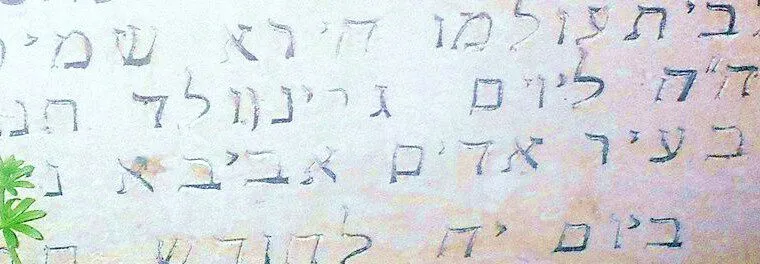 לביתעולמו הירא שמי
ה"ה גרינוולד חנ
בעיר אדים אביבא נ
ביום יח לחודש